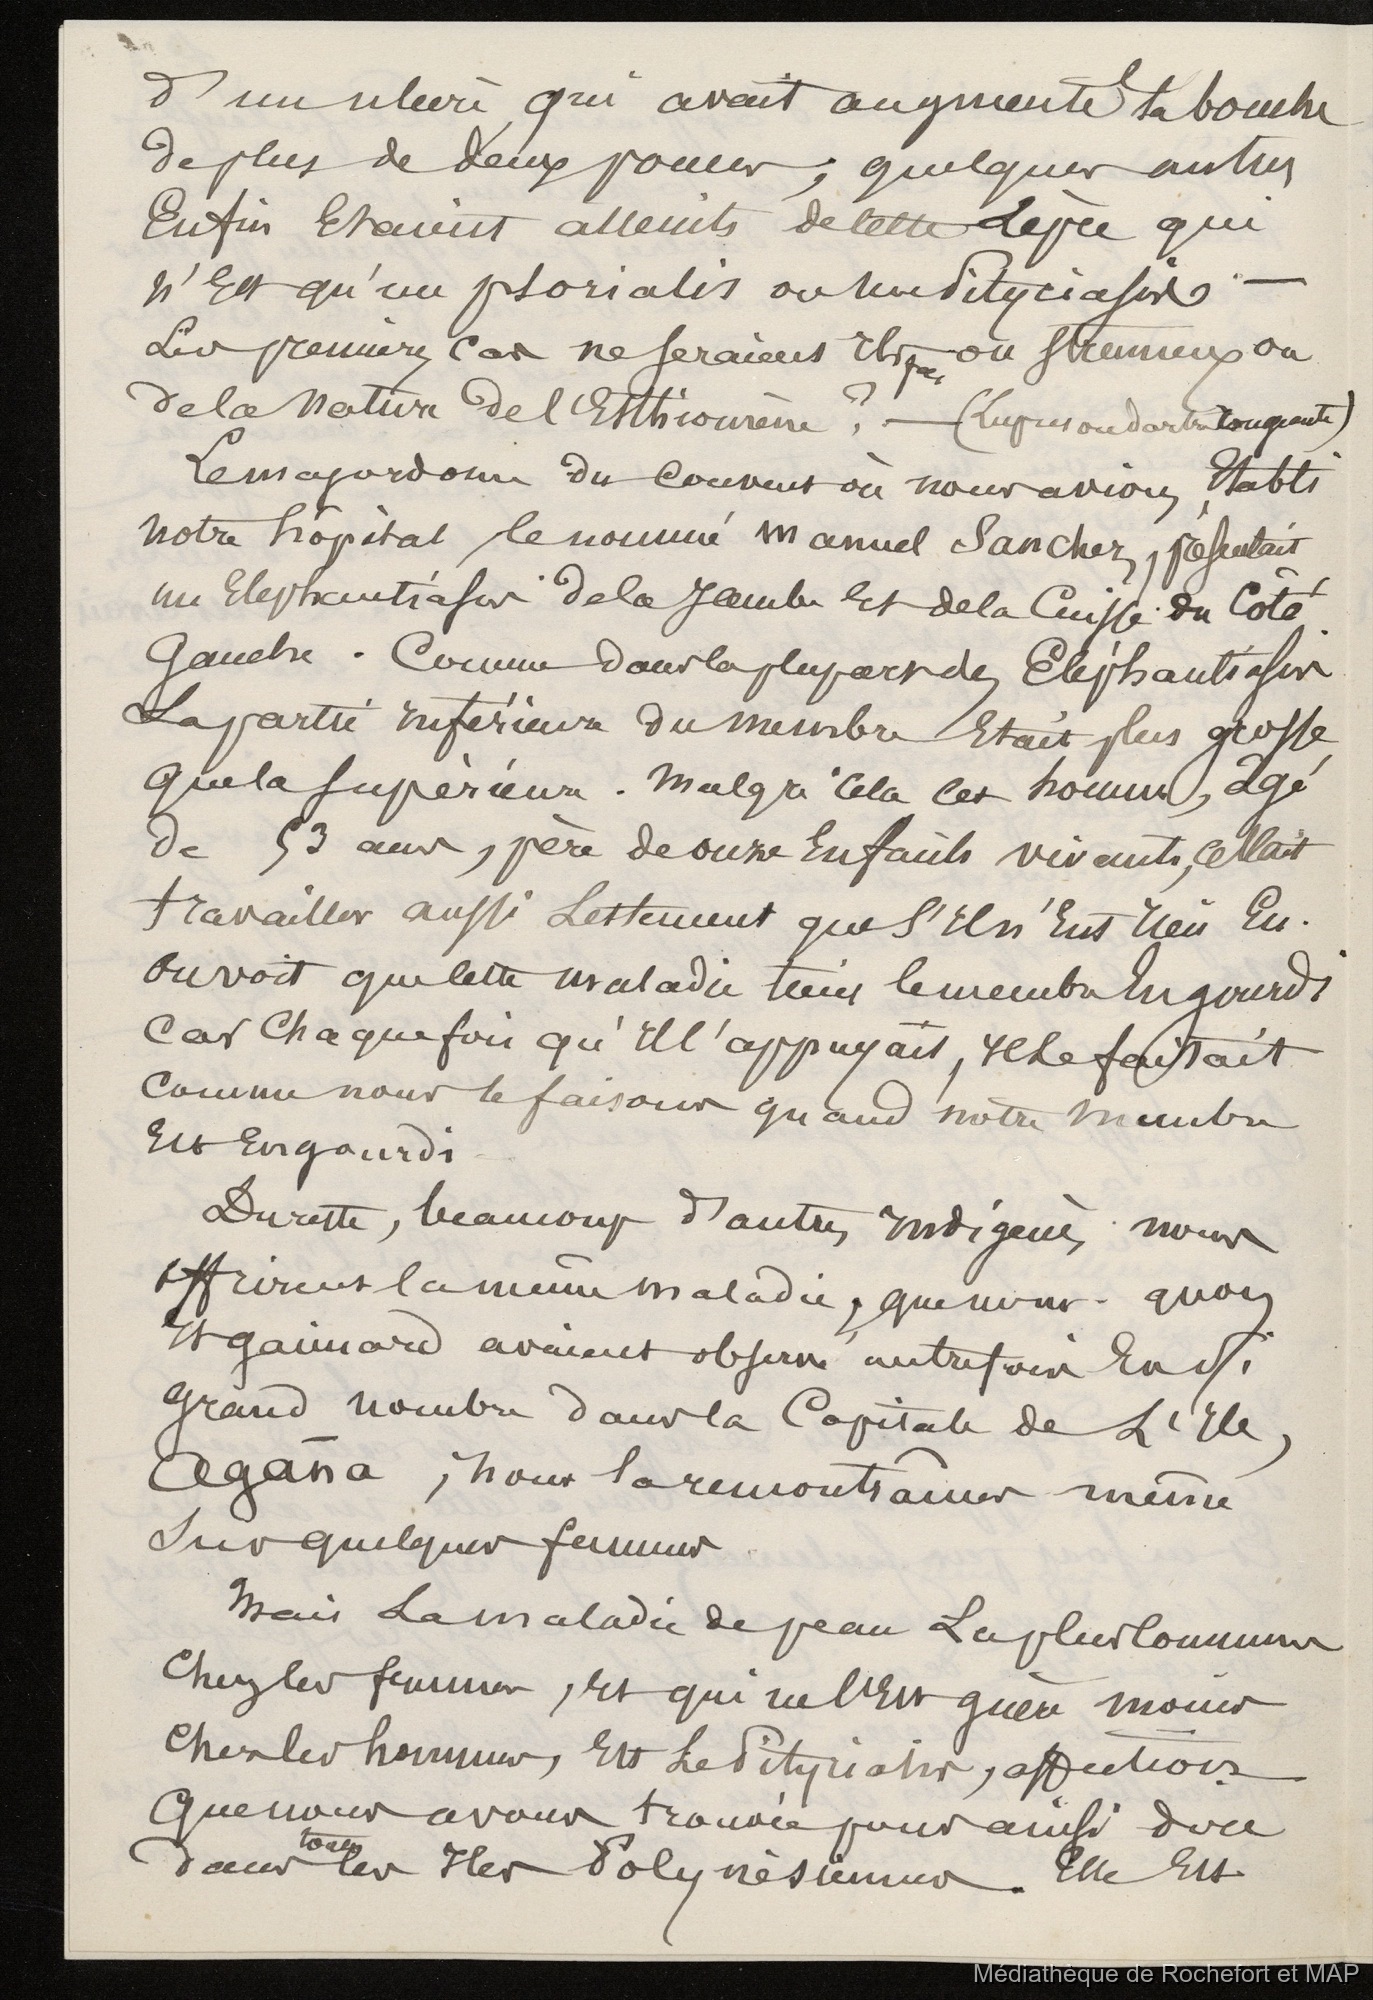 d'un ulcère qui avait augmenté la bouche
de plus de deux pouces ; quelques autres
Enfin Etaient atteints de cette Lèpre qui
n'Est qu'un psoriasis ou un Pityriasis. —
Les premiers Cas ne seraient ils pas ou strumeux ou
de la nature de l'Esthiomène ? — (Lupus ou dartre rongeante)
Le majordome du couvent où nous avions Etabli
notre hôpital, le nommé Manuel Sanchez, présentait
un Elephantiasis de la Jambe Et de la Cuisse du Côté
Gauche. Comme dans la plupart des Eléphantiasis
La partie inférieure du membre Etait plus grosse
que la supérieure. Malgré cela cet homme, âgé
de 53 ans, père de onze Enfants vivants, allait
travailler aussi Lestement que S'Il n'Eut rien Eu.
On voit que cette maladie tient le membre Engourdi
Car Chaque fois qu'Il l'appuyait, Il le faisait
Comme nous le faisons quand notre membre
Est Engourdi
Du reste, beaucoup d'autres Indigènes nous
offrirent la même maladie, que nous. quoy
Et gaimard avaient observé autrefois En si
grand nombre dans la Capitale de L'Ile,
Agaña ; nous la remontrâmes même
Sur quelques femmes
Mais La maladie de peau La plus Commune
Chez les femmes, Et qui ne l'Est guère moins
Chez les hommes, Est Le Pityriasis, affection
Que nous avons trouvée pour ainsi dire
dans toutes les Iles Polynésiennes. Elle Est
Médiathèque de Rochefort et MAP